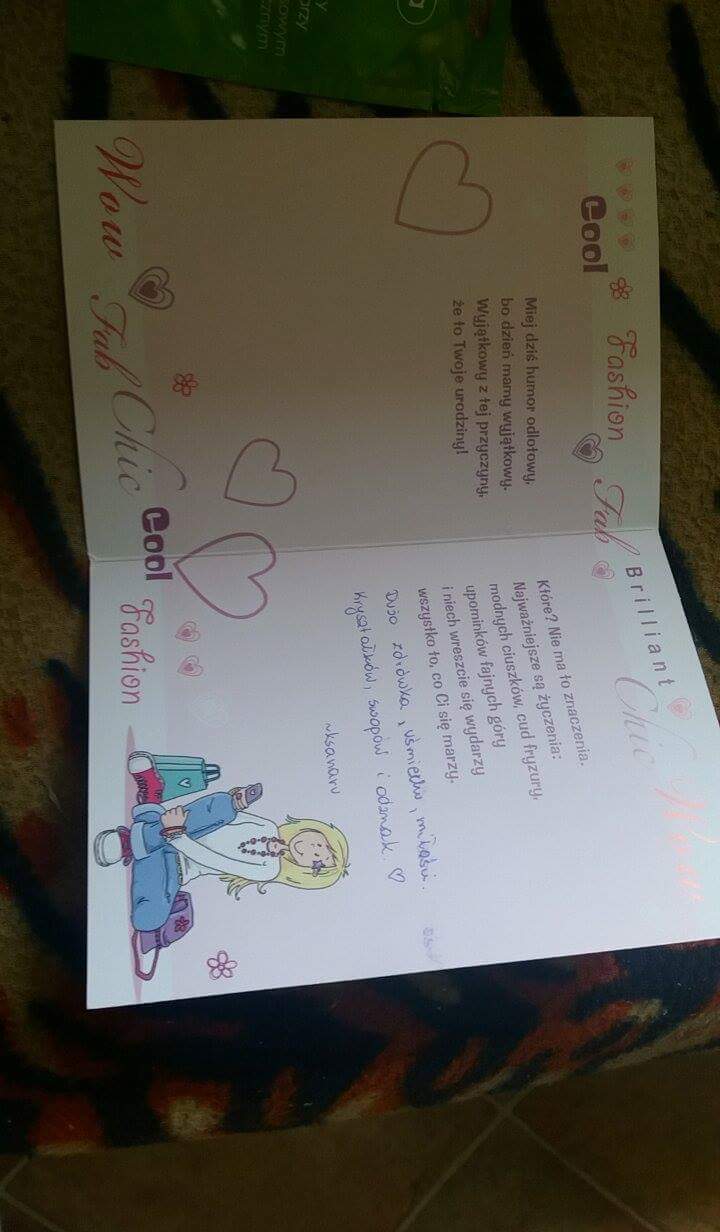 Cool Fashion Fab
Miej dziś humor odlotowy,
bo dzień mamy wyjątkowy.
Wyjątkowy z tej przyczyny,
że to Twoje urodziny!
Wow Fab Chic Cool Fashion
Brilliant
Chic Wow
Które? Nie ma to znaczenia.
Najważniejsze są życzenia:
modnych ciuszków, cud fryzury,
upominków fajnych góry
i niech wreszcie się wydarzy
wszystko to, co Ci się marzy.
Dużo zdrówka, uśmiechu, miłości.
Kryształków, swapów i odznak. ♡
~ksanaru